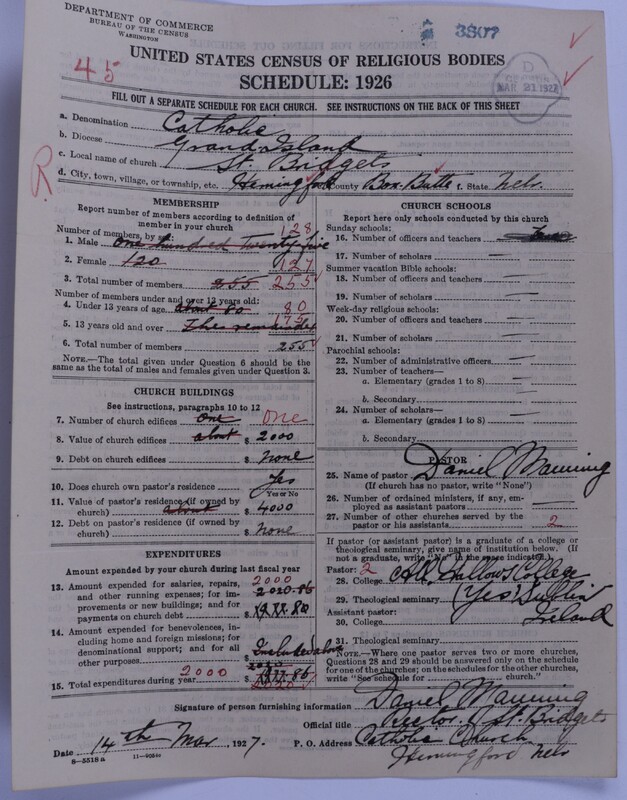 DEPARTMENT OF COMMERCE
BUREAU OF THE CENSUS
WASHINGTON
3807
45
UNITED STATES CENSUS OF RELIGIOUS BODIES
SCHEDULE: 1926
D
MAR 21 1927
FILL OUT A SEPARATE SCHEDULE FOR EACH CHURCH. SEE INSTRUCTIONS ON THE BACK OF THIS SHEET
a. Denomination Catholic
b. Diocese Grand Island
c. Local name of church St. Bridgets
R
d. City, town, village, or township, etc. Hemingford e. County Box-Butte f. State Nebr.
MEMBERSHIP
Report number of members according to definition of member in your church
Number of members, by sex: 128
1. Male One hundred twenty five
2. Female 120 127
3. Total number of members 255 255
Number of members under and over 13 years old:
4. Under 13 years of age about 80 80
5. 13 years old and over The remainder 175
6. Total number of members 255
NOTE.—The total given under Question 6 should be the same as the total of males and females given under Question 3.
CHURCH BUILDINGS
See instructions, paragraphs 10 to 12
7. Number of church edifices One One
8. Value of church edifices about $ 2000
9. Debt on church edifices $ None
10. Does church own pastor's residence? Yes
Yes or No
11. Value of pastor's residence (if owned by church) about $ 4000
12. Debt on pastor's residence (if owned by church) $ None
EXPENDITURES
Amount expended by your church during last fiscal year
13. Amount expended for salaries, repairs, and other running expenses; for improvements or new buildings; and for payments on church debt $ 2000
14. Amount expended for benevolences, including home and foreign missions; for denominational support; and for all other purposes $ Included above
15. Total expenditures during year 2000 $
CHURCH SCHOOLS
Report here only schools conducted by this church
Sunday schools:
16. Number of officers and teachers
17. Number of scholars —
Summer vacation Bible schools:
18. Number of officers and teachers —
19. Number of scholars —
Week-day religious schools:
20. Number of officers and teachers —
21. Number of scholars —
Parochial schools:
22. Number of administrative officers —
23. Number of teachers—
a. Elementary (grades 1 to 8) —
b. Secondary —
24. Number of scholars—
a. Elementary (grades 1 to 8) —
b. Secondary —
PASTOR
25. Name of pastor Daniel Manning
(If church has no pastor, write "None")
26. Number of ordained ministers, if any, employed as assistant pastors —
27. Number of other churches served by the pastor or his assistants 2
If pastor (or assistant pastor) is a graduate of a college or theological seminary, give name of institution below. (If not a graduate, write "No" in the space indicated.)
Pastor: 2
28. College All Hallows College
29. Theological seminary (Yes) Dublin
Assistant pastor:
30. College Ireland
31. Theological seminary
NOTE.—Where one pastor serves two or more churches, Questions 28 and 29 should be answered only on the schedule for one of the churches; on the schedules for the other churches, write "See schedule for ---- church."
Signature of person furnishing information Daniel Manning
Official title Rector of St. Bridgets
Date 14th Mar, 1927. P. O. Address Catholic Church
Hemingford Nebr
8—5518 a